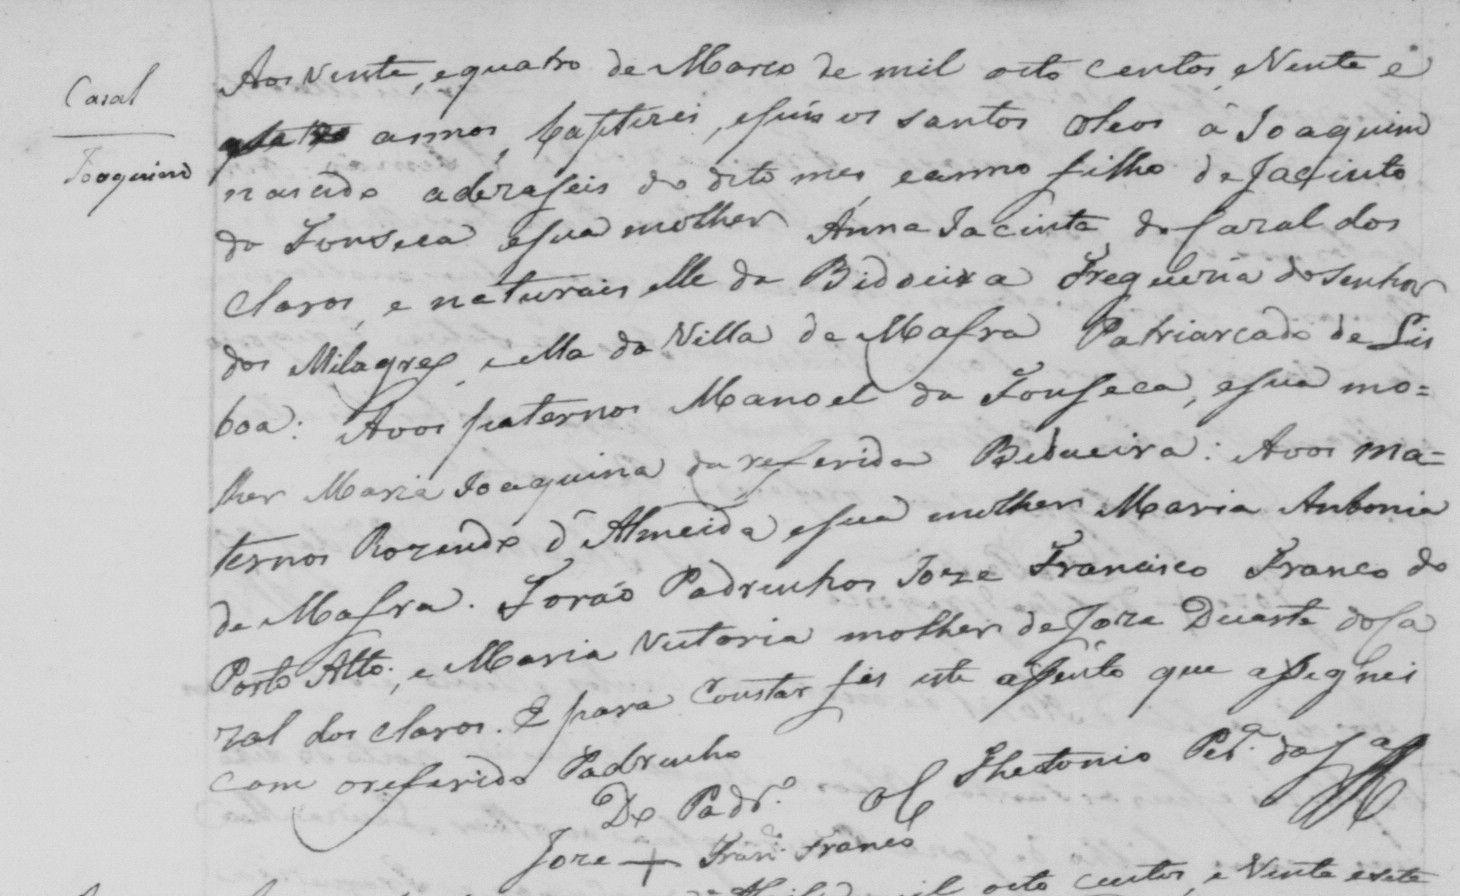 Casal
Joaquim
Aos vente, e quatro de Marco de mil oito centos, e Vente e
quatro annos, baptizei, e puis os santos oleos â Joaquim
nascido a dezaseis do dito mes, e anno filho de Jacinto
da Fonseca e sua molher Anna Jacinta do Cazal dos
Claros, e naturais elle da Bidoeira Freguezia do Senhor
dos Milagres, e ella da Villa de Mafra Patriarcado de Lis
boa: Avos paternos Manoel da Fonseca, e sua mo=
lher Maria Joaquina da referida Bidueira: Avos ma=
ternos Rozendo d'Almeida e sua molher Maria Antonia
de Mafra. Forão Padrinhos Joze Francisco Franco do
Porto Alto, e Maria Vitoria molher de Joze Duarte do Ca
zal dos Claros. E para Constar fis este assento que assignei
com o referido Padrinho
De Padr.º
Joze + Fran.co Franco